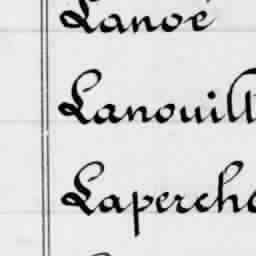 Lanoë
Lanouill
Laperche